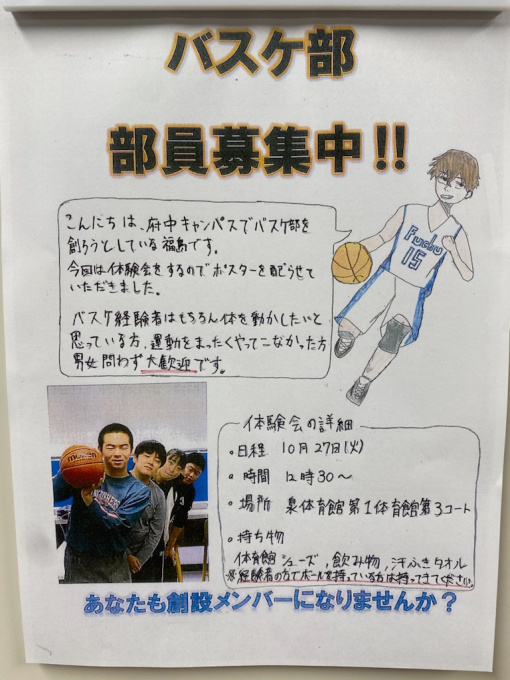 バスケ部
部員募集中!!
こんにちは、府中キャンパスでバスケ部を
創ろうとしている福島です。
今回は体験会をするのでポスターを配らせて
いただきました。
バスケ経験者はもちろん体を動かしたいと
思っている方、運動をまったくやってこなかった方
男女問わず大歓迎です。
Fuchu
15
体験会の詳細
・日程 10月27日(火)
・時間 12時30〜
・場所 泉体育館第1体育館第3コート
・持ち物
体育館シューズ,飲み物,汗ふきタオル
※経験者の方でボールを持っている方は持ってきてください。
molten
あなたも創設メンバーになりませんか?